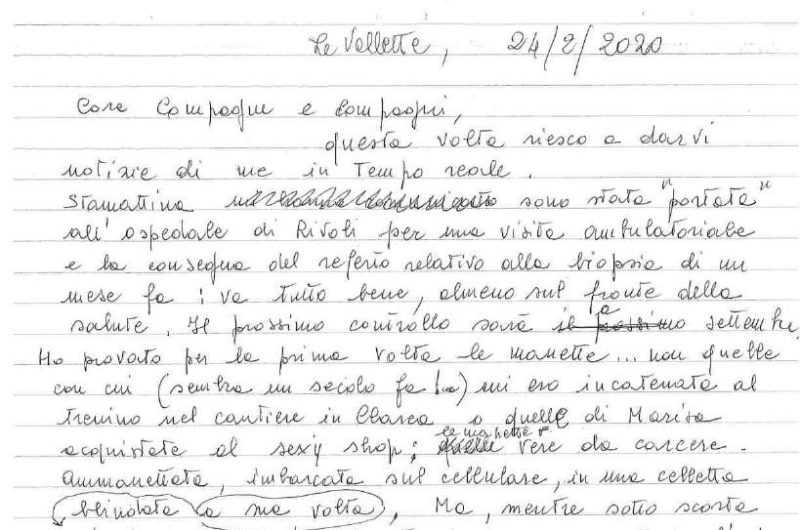 Le Vallette, 24/2/2020
Care Compagne e compagni,
questa volta riesco a darvi
notizie di me in tempo reale.
Stamattina sono stata "portata"
all'ospedale di Rivoli per una visita ambulatoriale
e la consegna del referto relativo alla biopsia di un
mese fa: va tutto bene, almeno sul fronte della
salute. Il prossimo controllo sarà a settembre.
Ho provato per la prima volta le manette... non quelle
con cui (sembra un secolo fa!) mi ero incatenata al
trenino nel cantiere in Clarea o quelle di Marisa
acquistate al sexy shop; le manette vere da carcere.
Ammanettata, imbarcata sul cellulare, in una celletta
blindata a sua volta, Ma, mentre sotto scorta